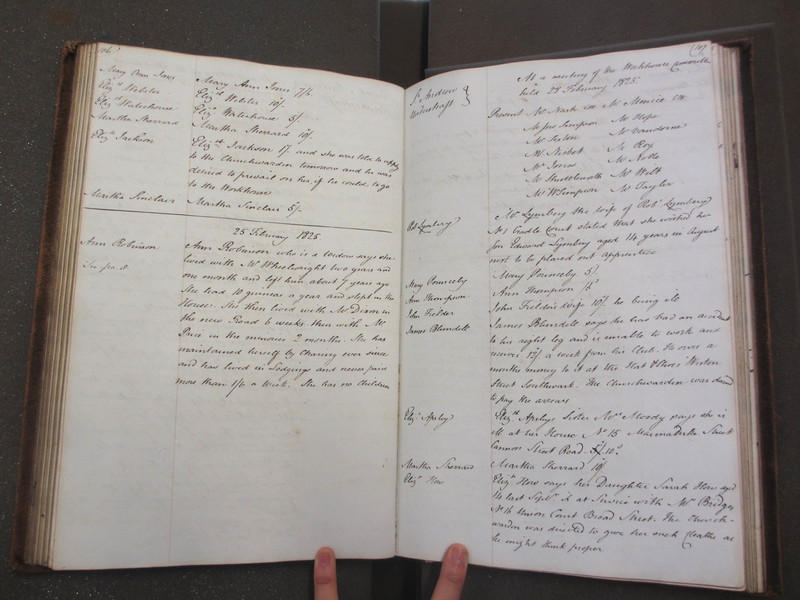 106
Mary Ann Jones Mary Ann Jones 7/6
Eliz.th Webster Eliz.th Webster 10/.
Eliz.th Waterhouse Eliz.th Waterhouse 5/.
Martha Sherrard Martha Sherrard 10/.
Eliz.th Jackson Eliz.th Jackson 17. and she was told to apply
to the Churchwarden tomorrow and he was
desired to prevail on her if he could to go
to the Workhouse
Martha Sinclair Martha Sinclair 5/-
25 February 1825
Ann Robinson Ann Robinson who is a widow says she
lived with Mr Wheelwright two years and
one month and left him about 7 years ago
She had 10 guineas a year and slept in the
House. She then lived with Mr Dixon in
the new Road 6 weeks. then with Mr
Price in the minories 2 months. She has
maintained herself by Charing ever since
and has lived in Lodgings and never paid
more than 1/6 a week. She has no Children
107
St Andrew & Undershaft
At a meeting of the Workhouse Committee
held 28 February 1825
Present Mr Nash Mr Menice
Mr Jno Simpson Mr Hope
Mr Ransome
Mr Nesbit Mr Roy
Mr Jones Mr Noble
Mr Shuttleworth Mr Welt
Mr W Simpson Mr Taylor
Rob Lymbery Mrs Lymbery the wife of Rob.t Lymbery
No 1 Cradle Court stated that she wished her
son Edward Lymbery aged 14 years in August
next to be placed out apprentice
Mary Pounceby Mary Pounceby 5/.
Ann Thompson Ann Thompson 15
John Fielder John Fielder's wife 10/. he being ill
James Blundell James Blundell says he has had an accident
to his right leg and is unable to work and
receives 12/. a week from his Club. He owes a
months money to it at the Hat & Weston
Street Southwark. The Churchwarden was desired
to pay the arrears
Eliz.th Apsley Eliz.th Apsleys Sister Mrs Moody says she is
ill at her House No 15 Marmaduke Street
Cannon Street Road. 10.s
Martha Sherrard Martha Sherrard 10/.
Eliz.th How Eliz.th How says her Daughter Sarah How aged
14 last Sept.r is at Service with Mr Bridges
No 16 Union Court Broad Street. The Church-
warden was directed to give her such Cloaths as
he might think proper